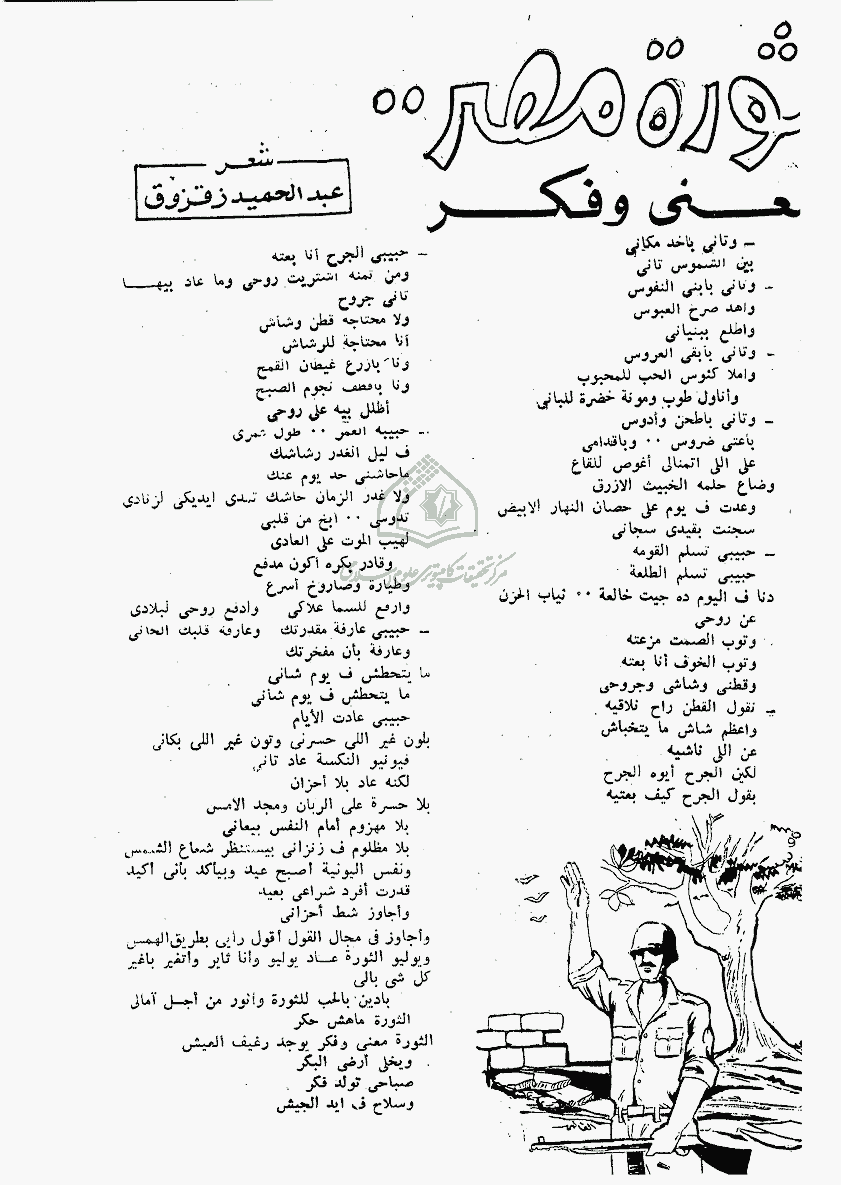 ثورة مصر ..
معنى وفكر
شعر
عبد الحميد زقزوق
ـ وتانى باخد مكانى
بين الشموس تانى
ـ وتانى بابنى النفوس
واهد صرح العبوس
واطلع ببنيانى
ـ وتانى بأبقى العروس
واملا كئوس الحب للمحبوب
وأناول طوب ومونة خضرة للبانى
ـ وتانى باطحن وأدوس
بأعتى ضروس .. وباقدامى
على اللى اتمنالى أغوص للقاع
وضاع حلمه الخبيث الازرق
وعدت ف يوم على حصان النهار الابيض
سجنت بقيدى سجانى
ـ حبيبى تسلم القومه
حبيبى تسلم الطلعة
دنا ف اليوم ده جيت خالعة .. ثياب الحزن
عن روحى
وتوب الصمت مزعته
وتوب الخوف أنا بعته
وقطنى وشاشى وجروحى
ـ نقول القطن راح نلاقيه
واعظم شاش ما يتخباش
عن اللى ناشيه
لكين الجرح أيوه الجرح
بقول الجرح كيف بعتيه
ـ حبيبى الجرح أنا بعته
ومن ثمنه اشتريت روحى وما عاد بيها
تانى جروح
ولا محتاجه قطن وشاش
أنا محتاجة للرشاش
ونا بازرع غيطان القمح
ونا باقطف نجوم الصبح
أظلل بيه على روحى
ـ حبيبه العمر .. طول عمرى
ف ليل الغدر رشاشك
ماحاشنى حد يوم عنك
ولا غدر الزمان حاشك تهدى ايديكى لزنادى
تدوسى .. ابخ من قلبى
لهيب الموت على العادى
وقادر بكره أكون مدفع
وطيارة وصاروخ أسرع
وارفع للسما علاكى وادفع روحى لبلادى
ـ حبيبى عارفة مقدرتك وعارفة قلبك الحانى
وعارفة بأن مفخرتك
ما يتحطش ف يوم شانى
ما يتحطش ف يوم شأنى
حبيبى عادت الأيام
بلون غير اللى حسرنى وتون غير اللى بكانى
فيونيو النكسة عاد تانى
لكنه عاد بلا أحزان
بلا حسرة على الربان ومجد الامس
بلا مهزوم أمام النفس بيعانى
بلا مظلوم ف زنزانى بيستنظر شعاع الشمس
ونفس اليونية أصبح عيد وبيأكد بأنى أكيد
قدرت أفرد شراعى بعيد
وأجاوز شط أحزانى
وأجاوز فى مجال القول أقول رايى بطريق الهمس
ويوليو الثورة عاد يوليو وأنا ثاير وأتغير باغير
كل شى بالى
بادين بالحب للثورة وانور من أجل آمالى
الثورة ماهش حكر
الثورة معنى وفكر يوجد رغيف العيش
ويخلى أرضى البكر
صباحى تولد فكر
وسلاح ف ايد الجيش